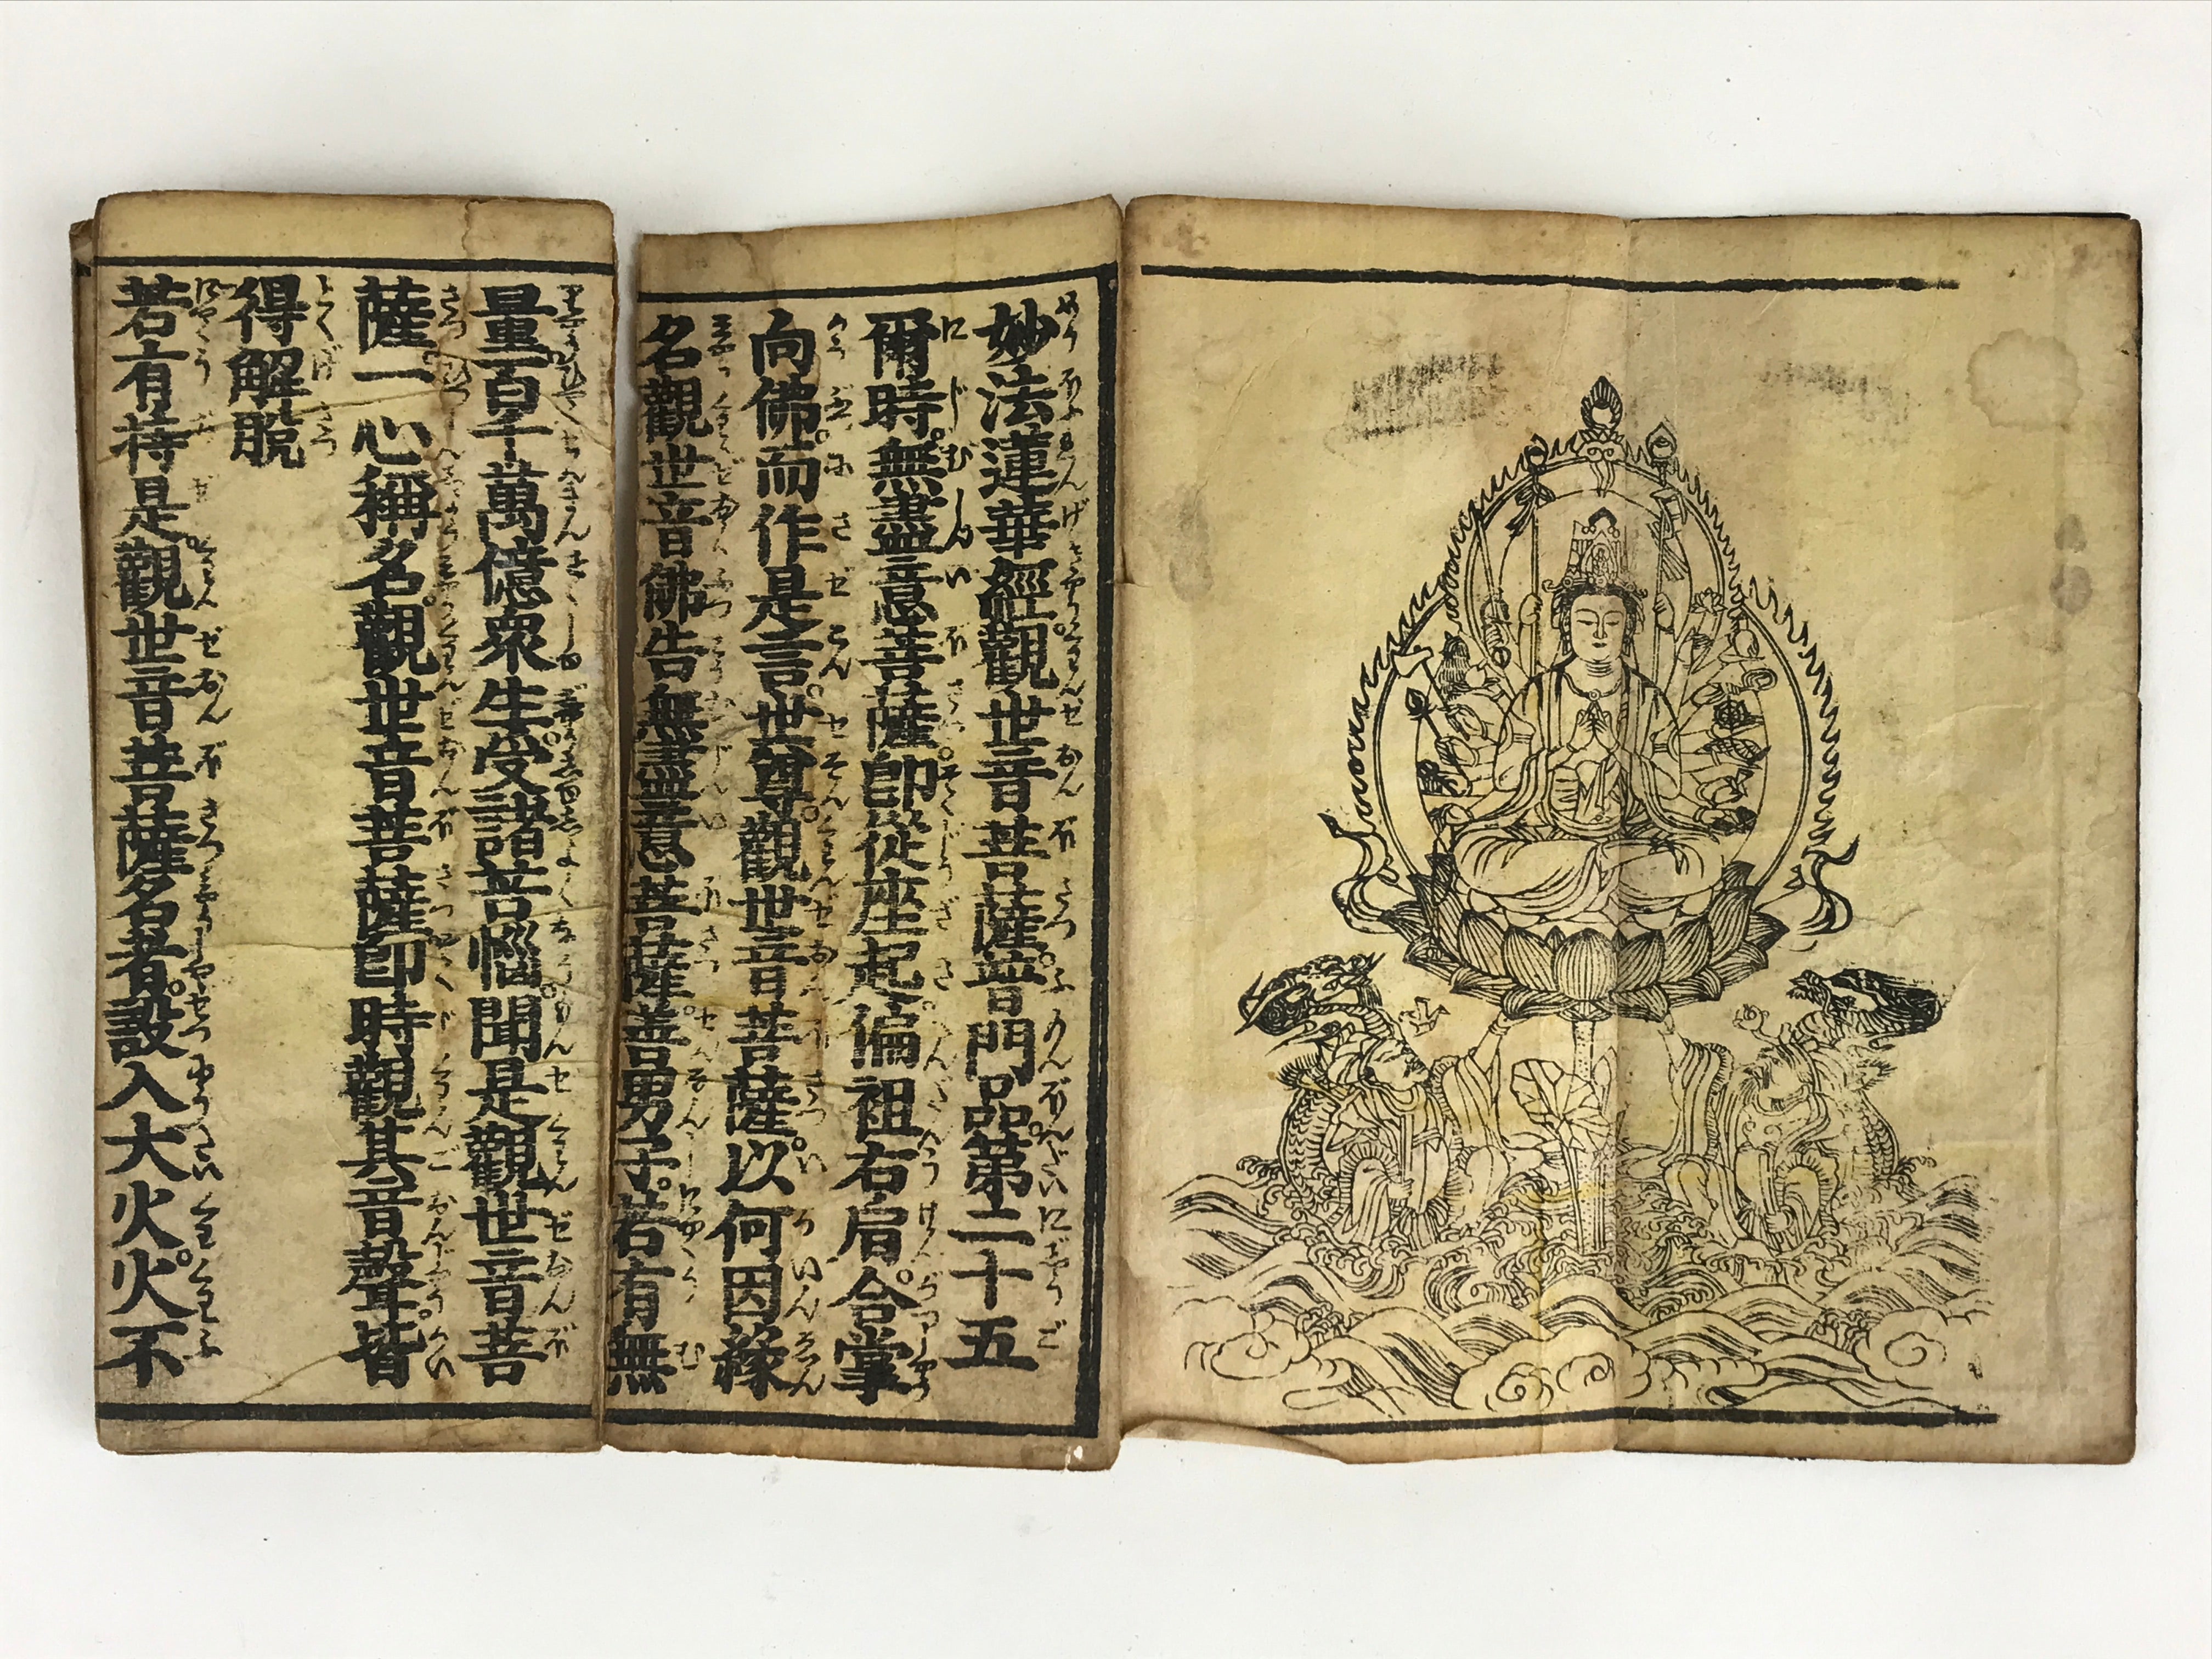 妙法蓮華經觀世音菩薩普門品第二十五
爾時無盡意菩薩即從座起偏袒右肩合掌
向佛而作是言世尊觀世音菩薩以何因緣
名觀世音佛告無盡意菩薩善男子若有無
量百千萬億衆生受諸苦惱聞是觀世音菩
薩一心稱名觀世音菩薩即時觀其音聲皆
得解脫
若有持是觀世音菩薩名者設入大火火不